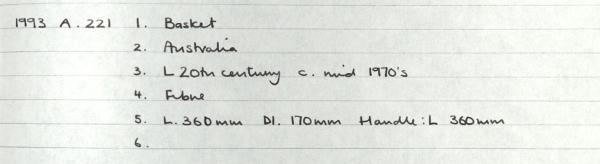 1993 A.221 1. Basket
2. Australia
3. L 20th century c. mid 1970's
4. Fibre
5. L. 360mm DI. 170mm Handle: L 360mm
6.